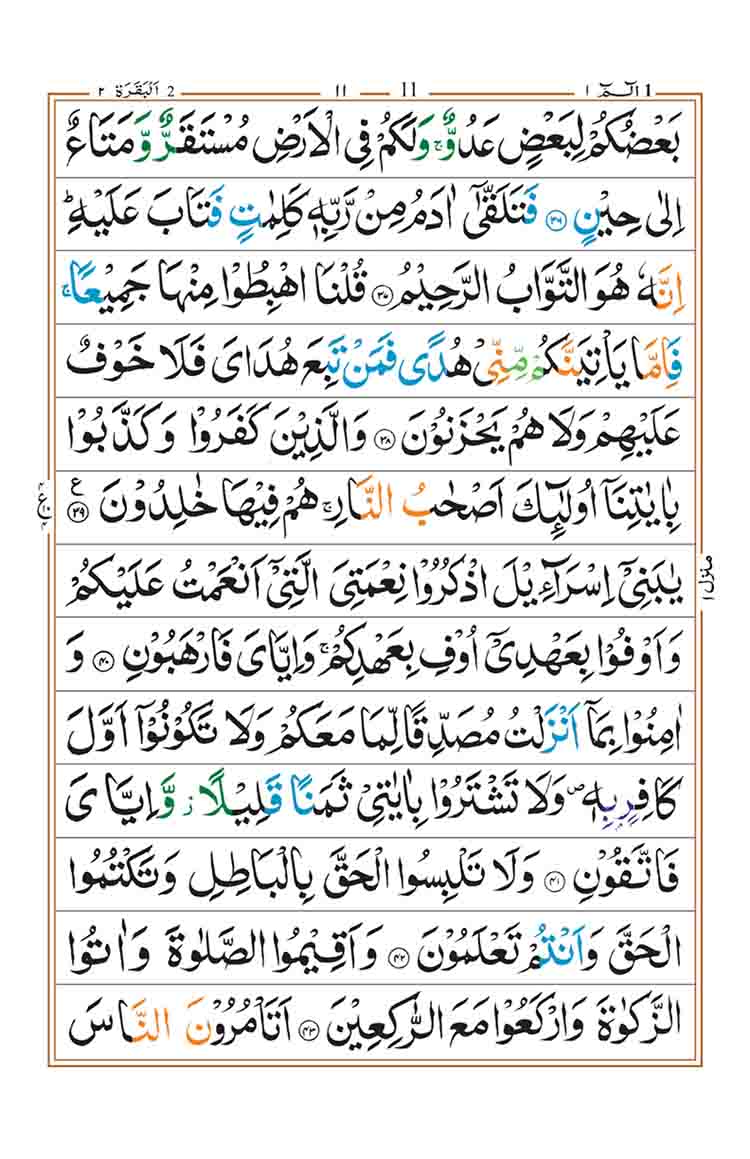 1 الٓـمّٓ ۱ 11 ۱۱ 2 اَلْبَقَرَة ۲
بَعْضُكُمْ لِبَعْضٍ عَدُوٌّ ۚ وَلَكُمْ فِی الْاَرْضِ مُسْتَقَرٌّ وَّ مَتَاعٌ
اِلٰى حِیْنٍ ﴿۳۶﴾ فَتَلَقّٰۤى اٰدَمُ مِنْ رَّبِّهٖ كَلِمٰتٍ فَتَابَ عَلَیْهِ ؕ
اِنَّهٗ هُوَ التَّوَّابُ الرَّحِیْمُ ﴿۳۷﴾ قُلْنَا اهْبِطُوْا مِنْهَا جَمِیْعًا ۚ
فَاِمَّا یَاْتِیَنَّكُمْ مِّنِّیْ هُدًى فَمَنْ تَبِعَ هُدَایَ فَلَا خَوْفٌ
عَلَیْهِمْ وَلَا هُمْ یَحْزَنُوْنَ ﴿۳۸﴾ وَالَّذِیْنَ كَفَرُوْا وَكَذَّبُوْا
بِاٰیٰتِنَاۤ اُولٰٓئِكَ اَصْحٰبُ النَّارِ ۚ هُمْ فِیْهَا خٰلِدُوْنَ ﴿۳۹﴾ ع
یٰبَنِیْۤ اِسْرَآءِیْلَ اذْكُرُوْا نِعْمَتِیَ الَّتِیْۤ اَنْعَمْتُ عَلَیْكُمْ
وَاَوْفُوْا بِعَهْدِیْۤ اُوْفِ بِعَهْدِكُمْ ۚ وَاِیَّایَ فَارْهَبُوْنِ ﴿۴۰﴾ وَ
اٰمِنُوْا بِمَاۤ اَنْزَلْتُ مُصَدِّقًا لِّمَا مَعَكُمْ وَلَا تَكُوْنُوْۤا اَوَّلَ
كَافِرٍۭ بِهٖ ۪ وَلَا تَشْتَرُوْا بِاٰیٰتِیْ ثَمَنًا قَلِیْلًا ؗ وَّاِیَّایَ
فَاتَّقُوْنِ ﴿۴۱﴾ وَلَا تَلْبِسُوا الْحَقَّ بِالْبَاطِلِ وَتَكْتُمُوا
الْحَقَّ وَاَنْتُمْ تَعْلَمُوْنَ ﴿۴۲﴾ وَاَقِیْمُوا الصَّلٰوةَ وَاٰتُوا
الزَّكٰوةَ وَارْكَعُوْا مَعَ الرّٰكِعِیْنَ ﴿۴۳﴾ اَتَاْمُرُوْنَ النَّاسَ
منزل ۱